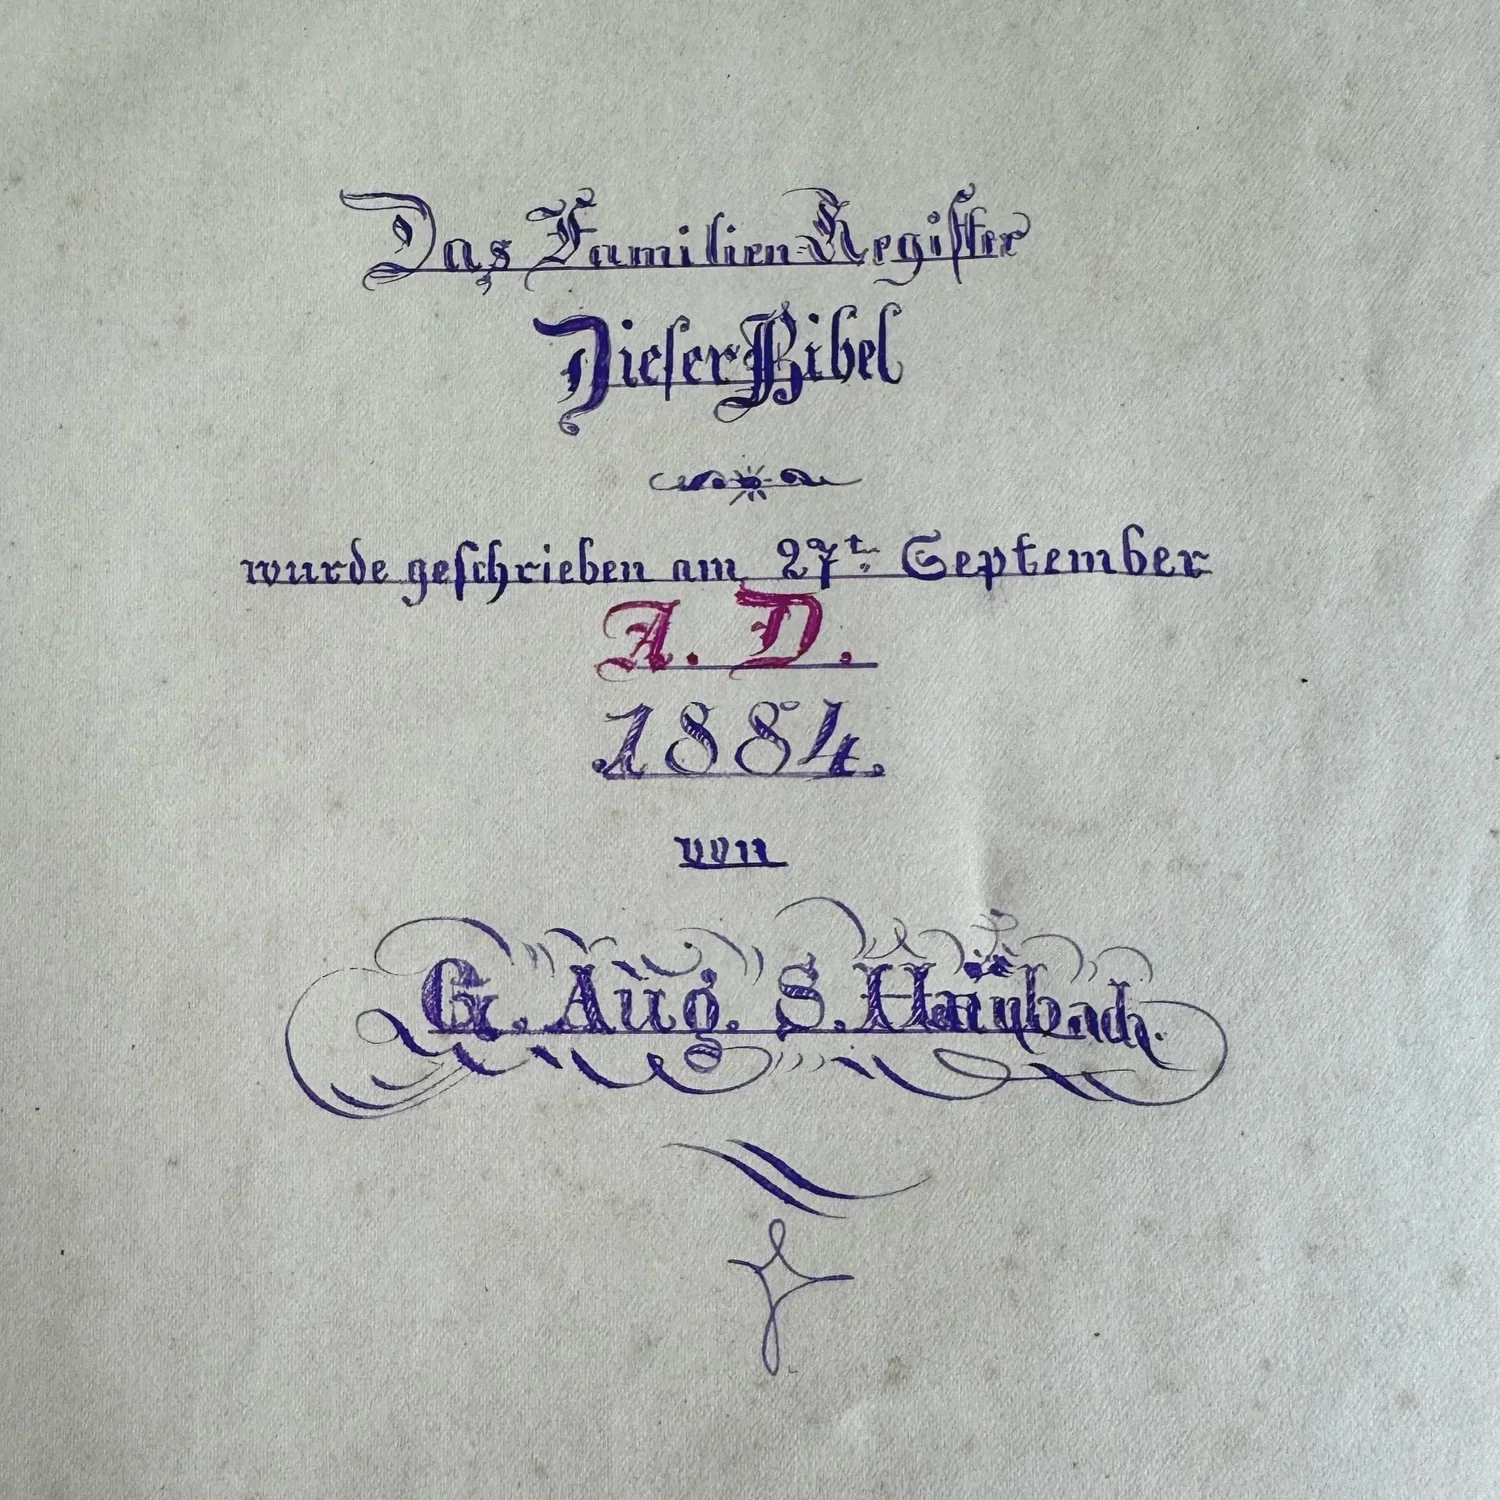 Das Familien-Register
Dieser Bibel
wurde geschrieben am 27t September
A. D.
1884.
von
G. Aug. S.